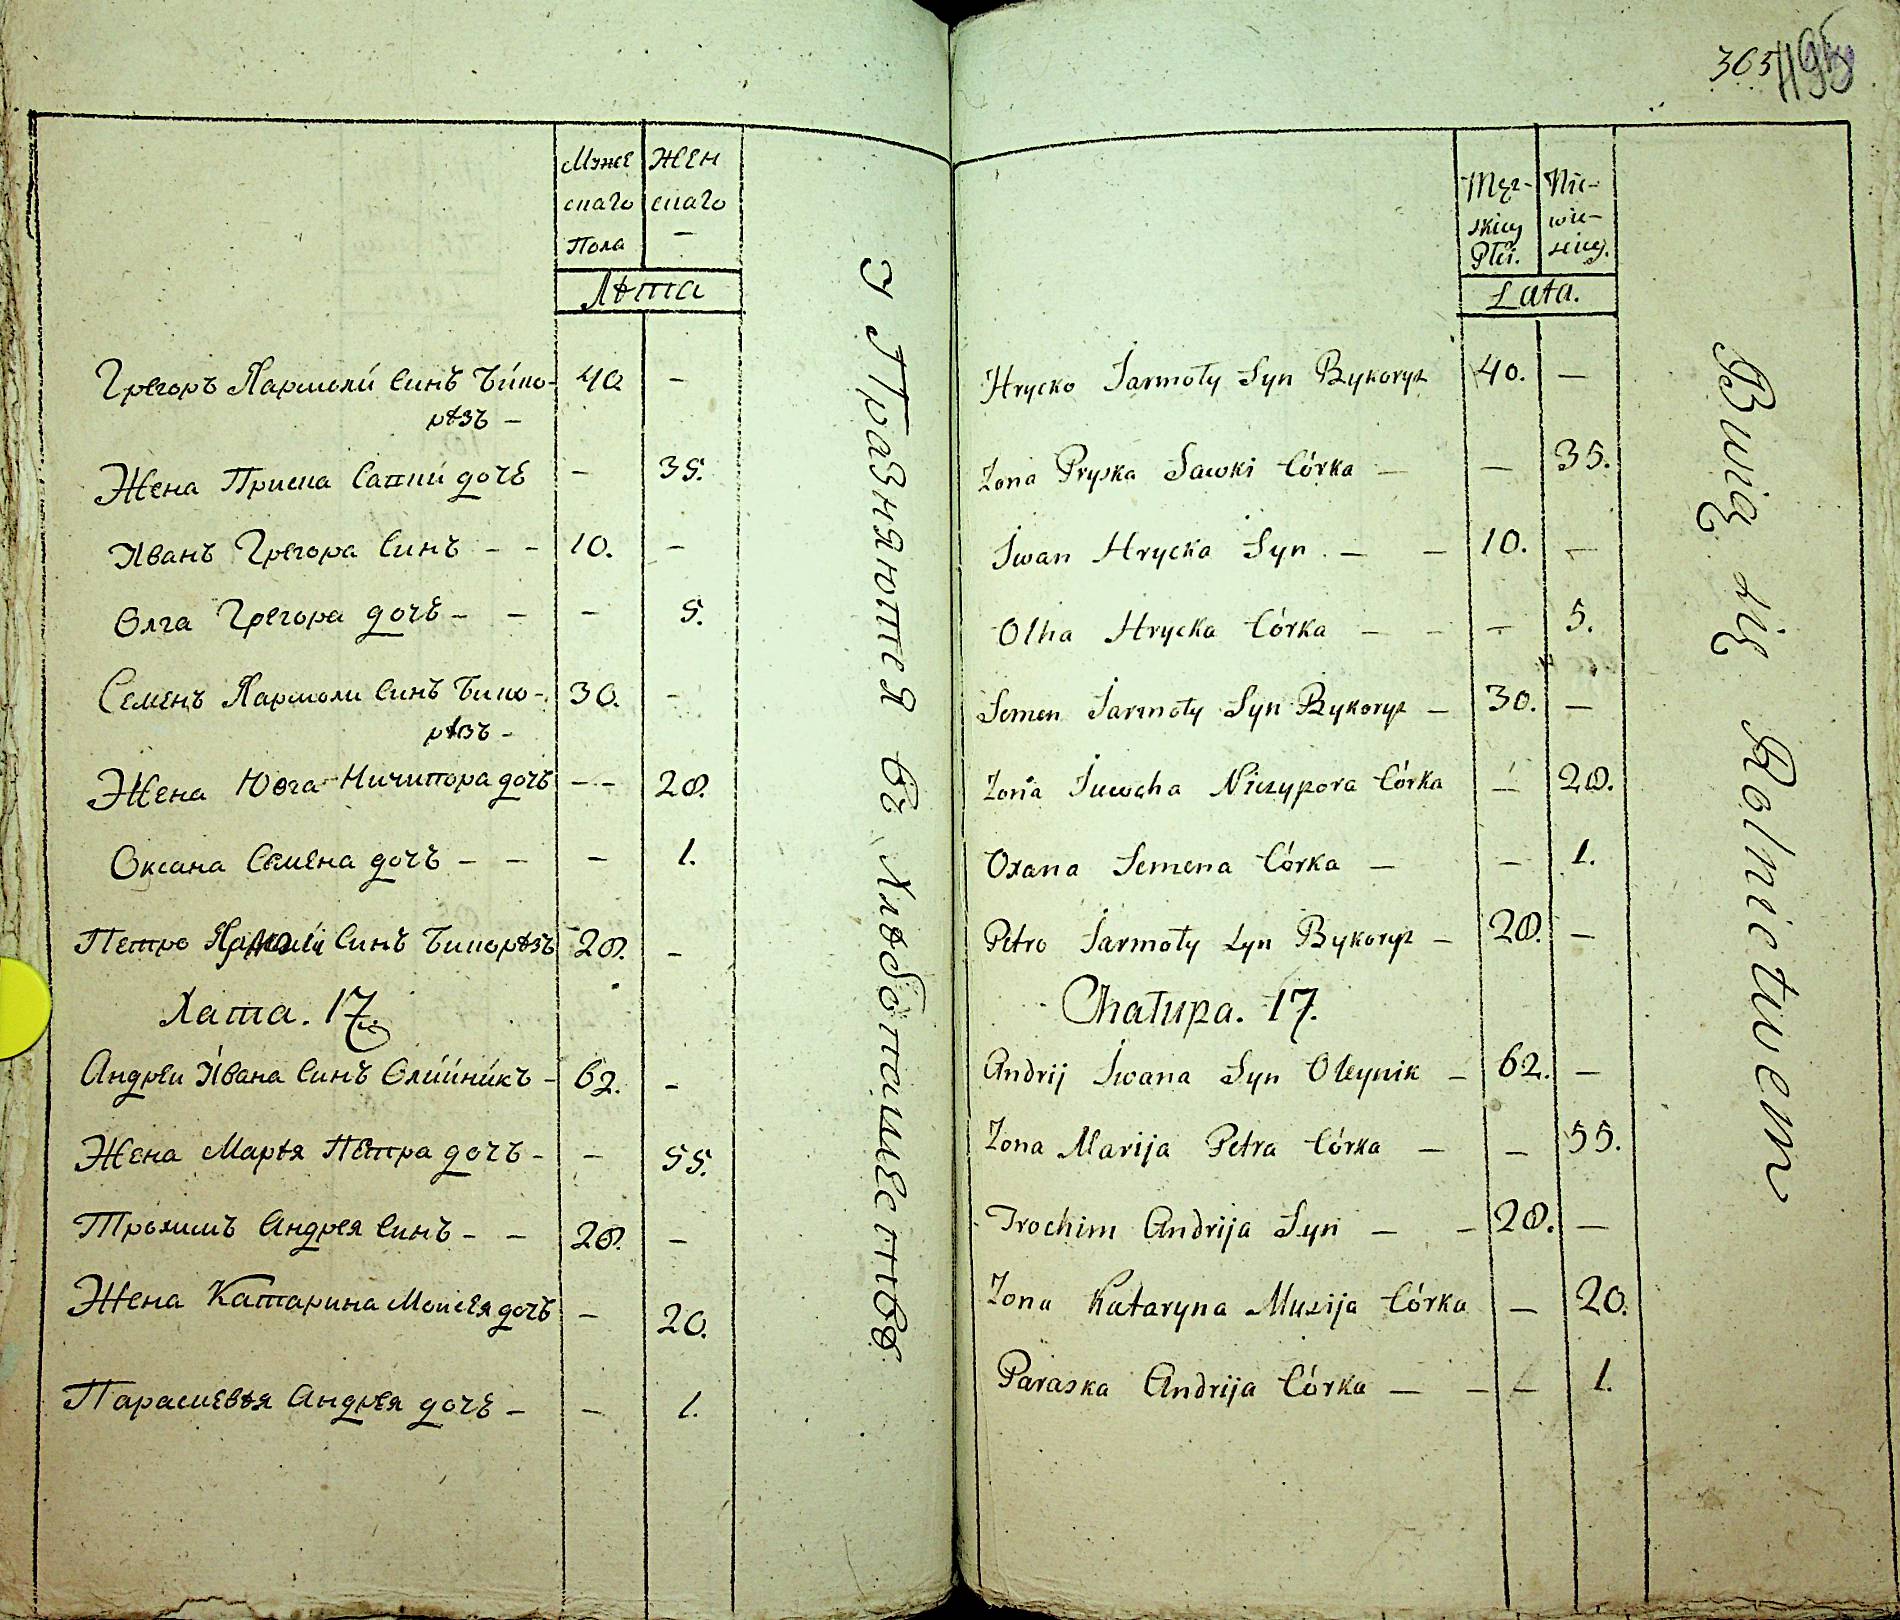 Муже Жен
скаго скаго
Пола —
Лѣта
Грегоръ Ярмоли синъ Бико- 40 —
рѣзъ —
Жена Приска Савки дочъ — 35.
Иванъ Грегора синъ — — 10. —
Олга Грегора дочъ — — — 5.
Семенъ Ярмоли синъ Бико- 30. —
рѣзъ —
Жена Ювга Ничипора дочъ — — 28.
Оксана Семена дочъ — — — 1.
Петро Ярмоли синъ Бикорѣзъ 28. —
Хата. 17.
Андреи Ивана синъ Олийникъ — 62. —
Жена Марѣя Петра дочъ — — 55.
Трохимъ Андрея синъ — — 28. —
Жена Катарина Моисея дочъ — 20.
Параскевѣя Андрея дочъ — — 1.
Упразняются въ Хлѣбопашествѣ
365
Męz- Nie-
skiey wie-
Płci. sciey.
Lata.
Hrycko Jarmoły Syn Bykoryz 40. —
Zona Pryska Sawki Córka — — 35.
Jwan Hrycka Syn — — 10. —
Olha Hrycka Córka — — — 5.
Semen Jarmoły Syn Bykoryz — 30. —
Zona Juwcha Niczypora Córka — 28.
Oxana Semena Córka — — 1.
Petro Jarmoły Syn Bykoryz — 28. —
Chałupa. 17.
Andrij Jwana Syn Oleynik — 62. —
Zona Marija Petra Córka — — 55.
Trochim Andrija Syn — — 28. —
Zona Kataryna Musija Córka — 20.
Paraska Andrija Córka — — — 1.
Bawią się Rolnictwem